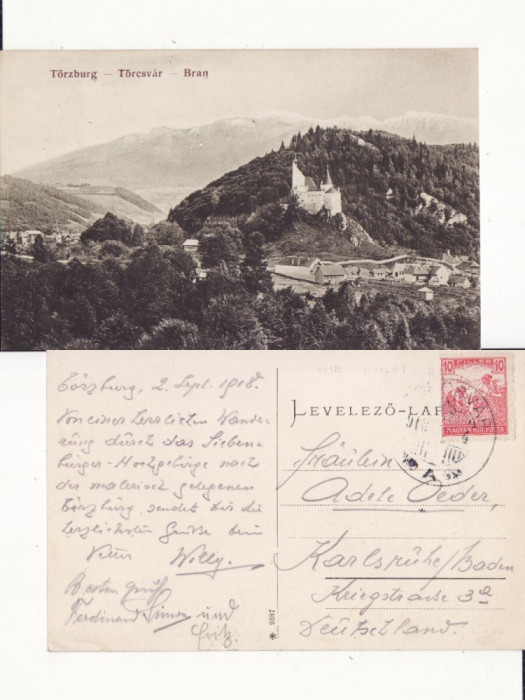 Törzburg — Törcsvár — Bran
Törzburg, 2. Sept. 1918.
Von einer herzlichen Wande-
rung durch das Sieben-
bürger-Hochgebirge nach
der malerisch gelegenen
Törzburg, sendet dir die
herzlichsten Grüße dein
Vetter Willy.
Besten Gruß
Ferdinand Simon und
Fritz.
LEVELEZŐ-LAP
10 FILLÉR 10
MAGYAR KIR. POSTA
Fräulein
Adele Oeder,
Karlsruhe/Baden
Kriegstrasse 3a
Deutschland.
* 9387